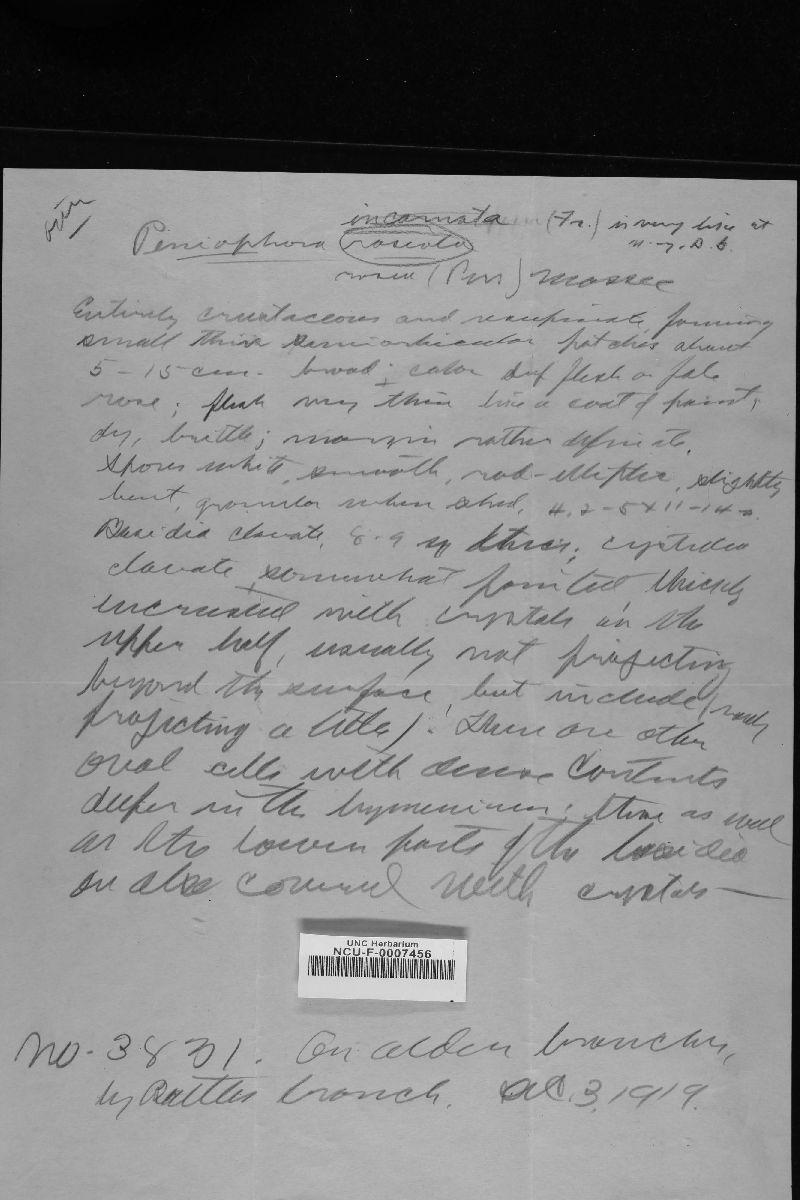 incarnata (Fr.) is very like at
N.Y. B.G.
Peniophora roseola
rosea (Pers) Massee
Entirely crustaceous and resupinate, forming
small thin semiorbicular patches about
5 - 15 cm. broad; color deep flesh or pale
rose; flesh very thin like a coat of paint,
dry, brittle; margin rather definite.
Spores white, smooth, rod-elliptic, slightly
bent, granular when shed, 4.2-5 x 11-14
Basidia clavate, 8-9 thick; cystidia
clavate somewhat pointed thickly
incrusted with crystals in the
upper half, usually not projecting
beyond the surface, but included (rarely
projecting a little). There are other
oval cells with dense contents
deeper in the hymenium; these as well
as the lower parts of the basidia
are also covered with crystals —
UNC Herbarium
NCU-F-0007456
No. 3831. On alder branches,
by Battles branch. Oct. 3, 1919.